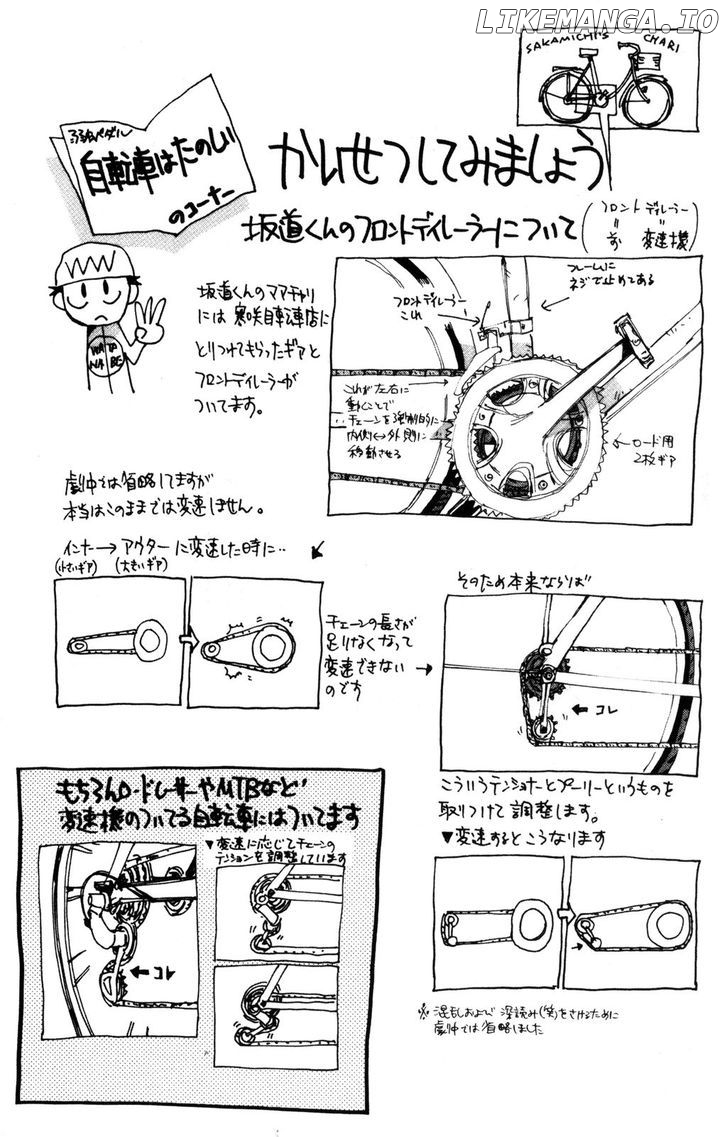 LIKEMANGA.IO
SAKAMICHI'S CHARI
弱虫ペダル
自転車はたのしい
のコーナー
かいせつしてみましょう
坂道くんのフロントディレーラーについて
フロントディレーラー
〃 〃
前 変速機
WATA
NABE
坂道くんのママチャリ
には寒咲自転車店に
とりつけてもらったギアと
フロントディレーラーが
ついてます。
フロントディレーラー
これ
フレームに
ネジで止めてある
これが左右に
動くことで
チェーンを強制的に
内側↔外側に
移動させる
ロード用
2枚ギア
劇中では省略してますが
本当はこのままでは変速しません。
インナー→アウターに変速した時に‥
(小さいギア) (大きいギア)
チェーンの長さが
足りなくなって
変速できない
のです
そのため本来ならば
コレ
こういうテンショナーとプーリーというものを
取りつけて調整します。
▼変速するとこうなります
もちろんロードレーサーやMTBなど
変速機のついてる自転車にはついてます
▼変速に応じてチェーンの
テンションを調整しています
コレ
※混乱および深読み(笑)をさけるために
劇中では省略しました